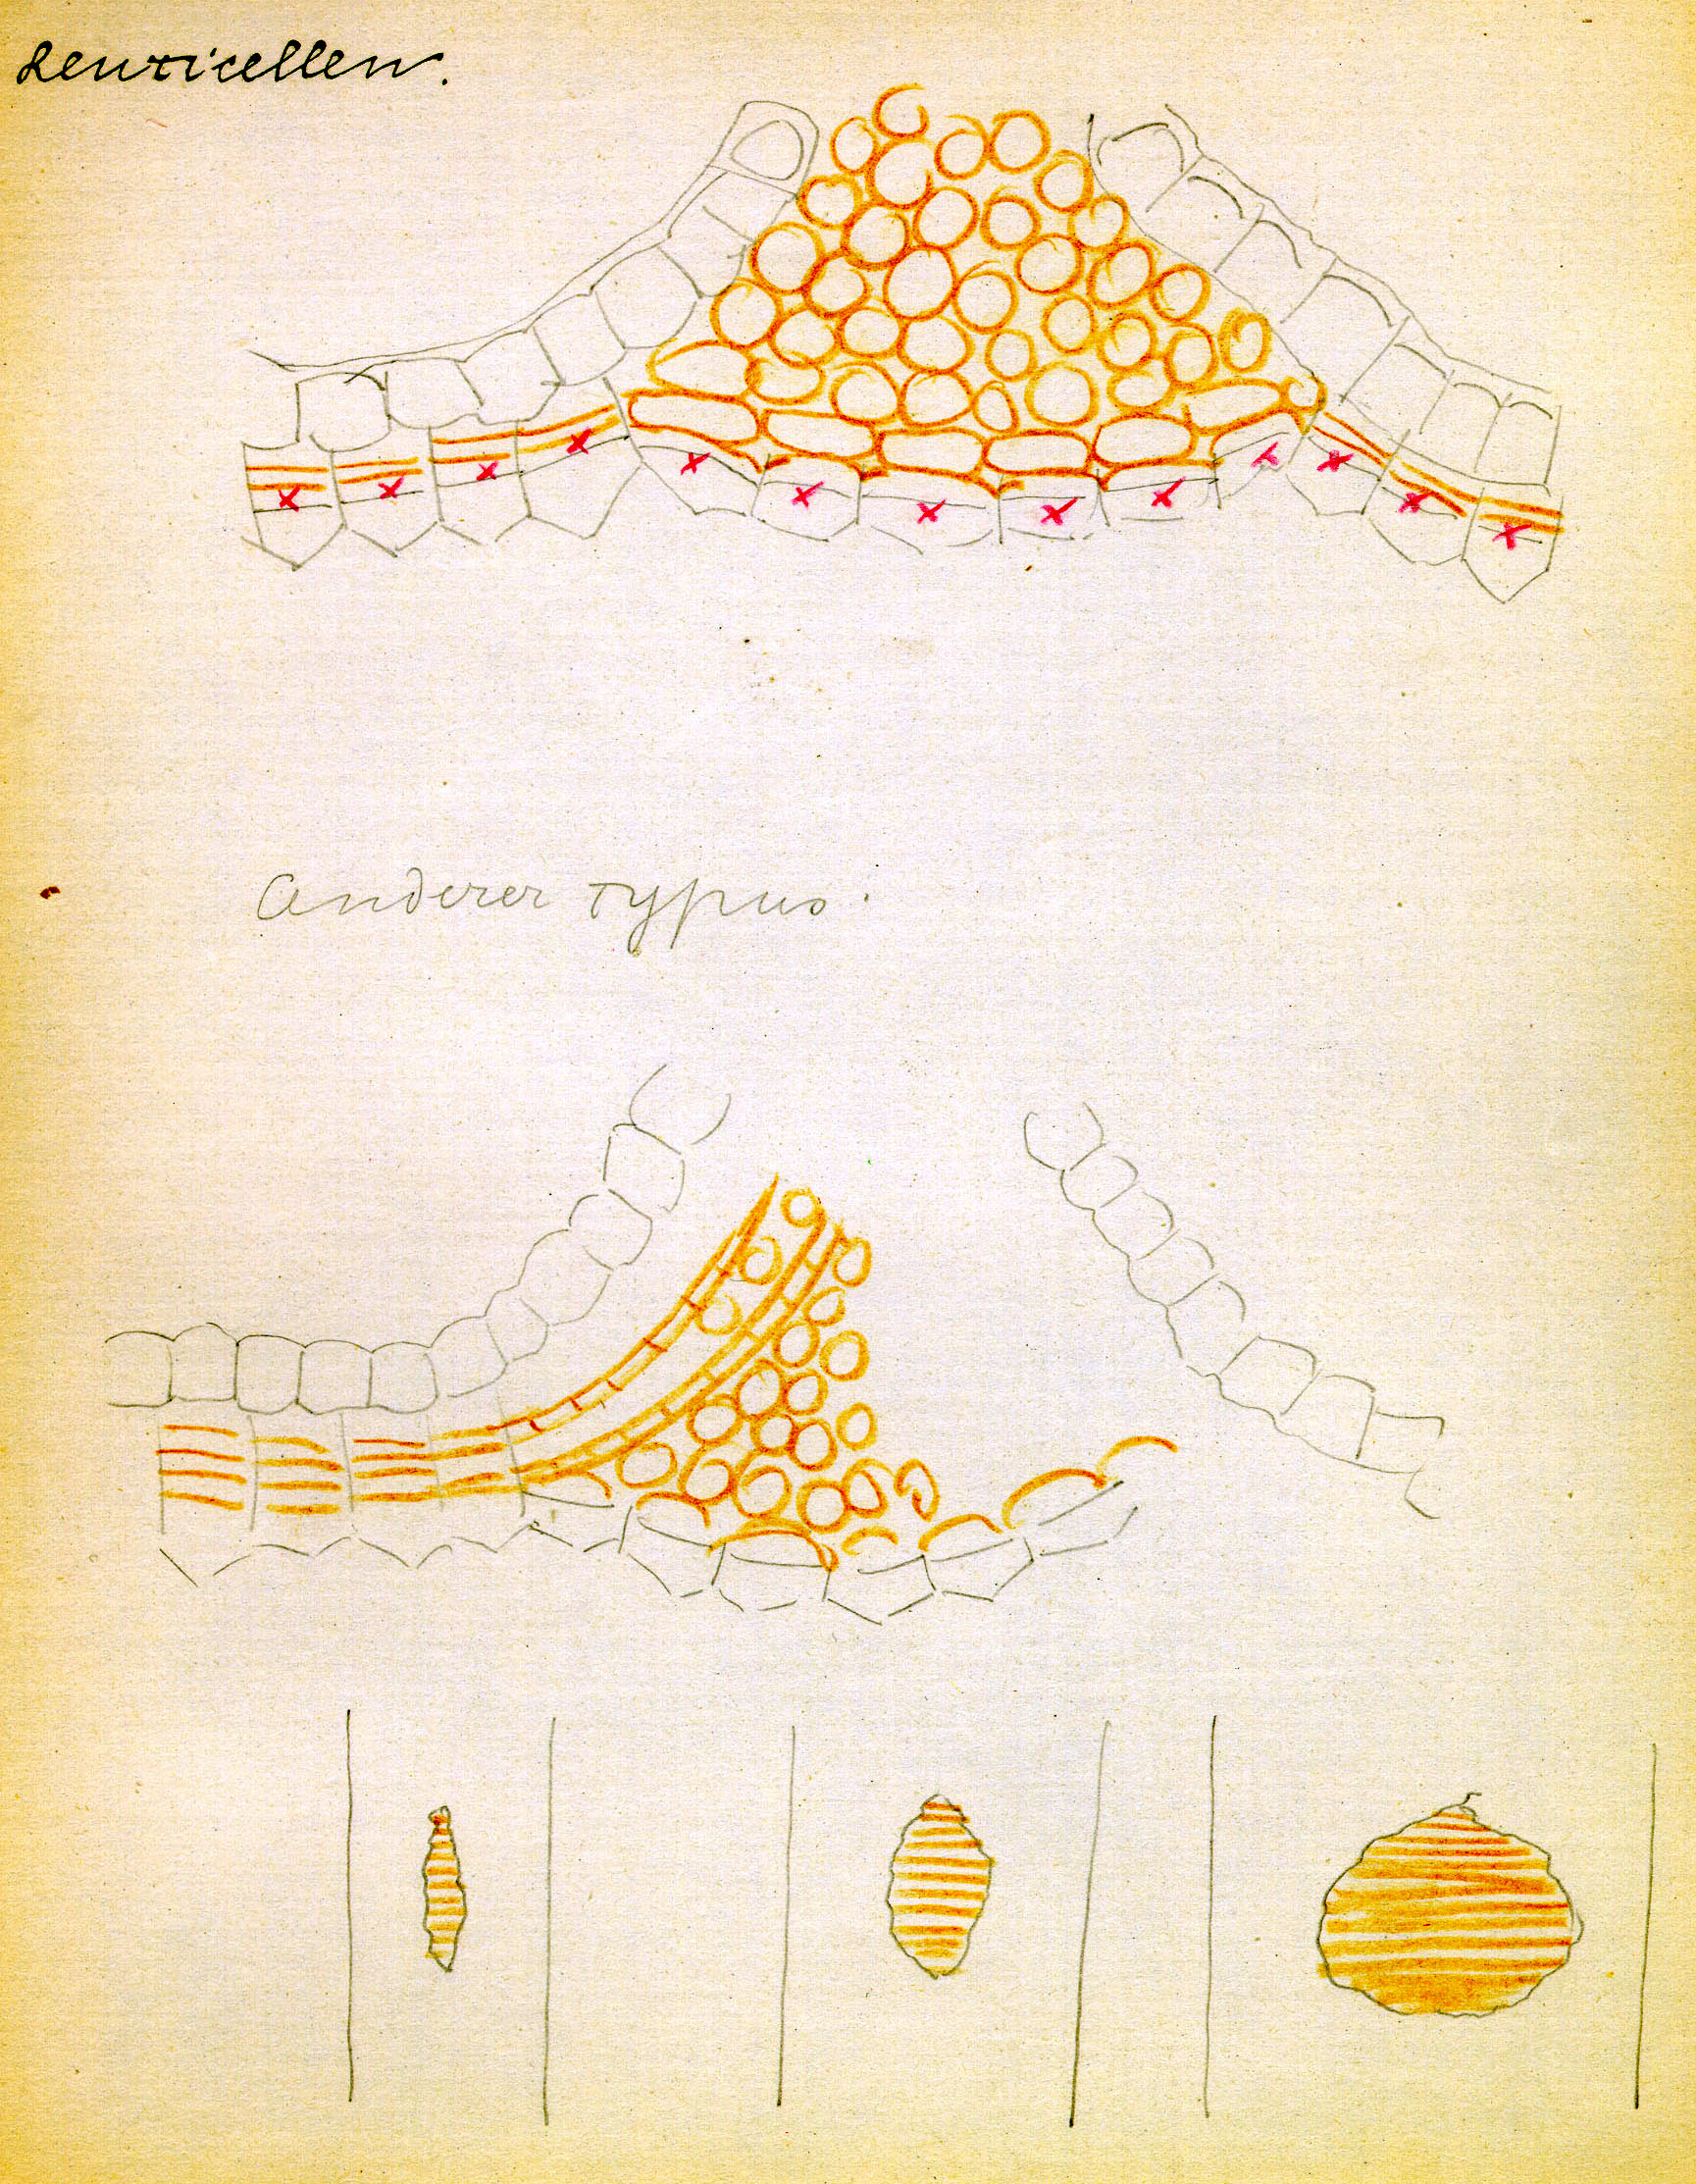 Lenticellen.
Anderer Typus.